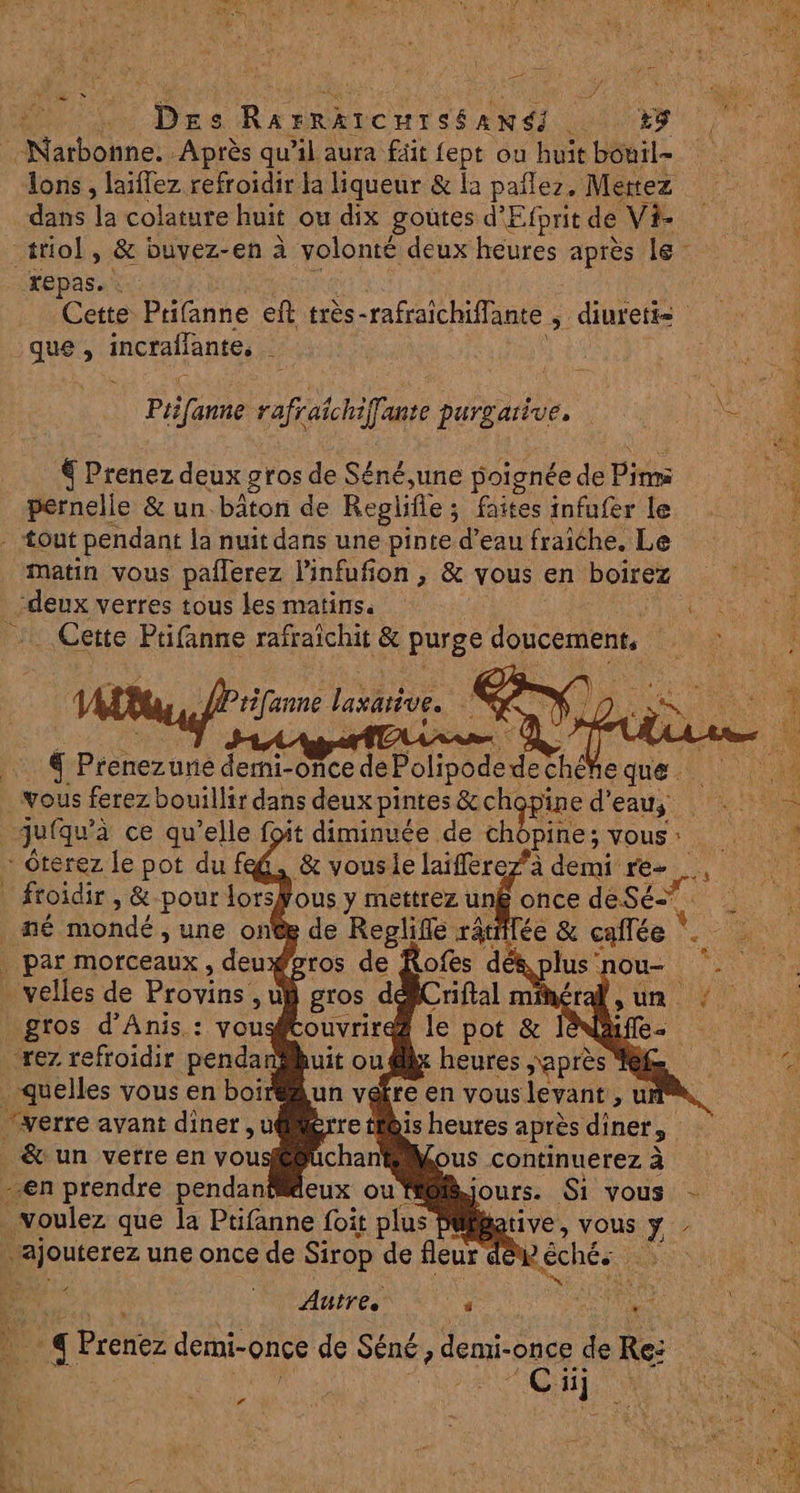 Des Rafraichissans. 29
Narbonne. Après qu'il aura fait ſept ou huit bouil-
lons, laiſſez refroidir la liqueur & la paſſez. Mettez
dans la colature huit ou dix goutes d'Eſprit de Vi-
triol, & buvez-en à volonté deux heures après le
repas.
Cette Ptiſanne eſt très-rafraîchiſſante, diureti-
que, incraſſante.
Ptiſanne rafraîchiſſante purgative.
¶ Prenez deux gros de Séné, une poignée de Pim-
pernelle & un bâton de Regliſſe; faites infuſer le
tout pendant la nuit dans une pinte d'eau fraîche. Le
matin vous paſſerez l'infuſion, & vous en boirez
deux verres tous les matins.
Cette Ptiſanne rafraîchit & purge doucement.
Ptiſanne laxative.
¶ Prenez une demi-once de Polipode de chêne que
vous ferez bouillir dans deux pintes & chopine d'eau,
juſqu'à ce qu'elle ſoit diminuée de chopine; vous
ôterez le pot du feu, & vous le laiſſerez à demi re-
froidir, & pour lors vous y mettrez une once de Sé-
né mondé, une once de Regliſſe ratiſſée & caſſée
par morceaux, deux gros de Roſes des plus nou-
velles de Provins, un gros de Criſtal minéral, un
gros d'Anis: vous couvrirez le pot & le laiſſe-
rez refroidir pendant huit ou dix heures, après leſ-
quelles vous en boirez un verre en vous levant, un
verre avant dîner, un verre trois heures après dîner,
& un verre en vous couchant. Vous continuerez à
en prendre pendant deux ou trois jours. Si vous
voulez que la Ptiſanne ſoit plus purgative, vous y
ajouterez une once de Sirop de fleur de pêché.
Autre.
¶ Prenez demi-once de Séné, demi-once de Re-
C iij